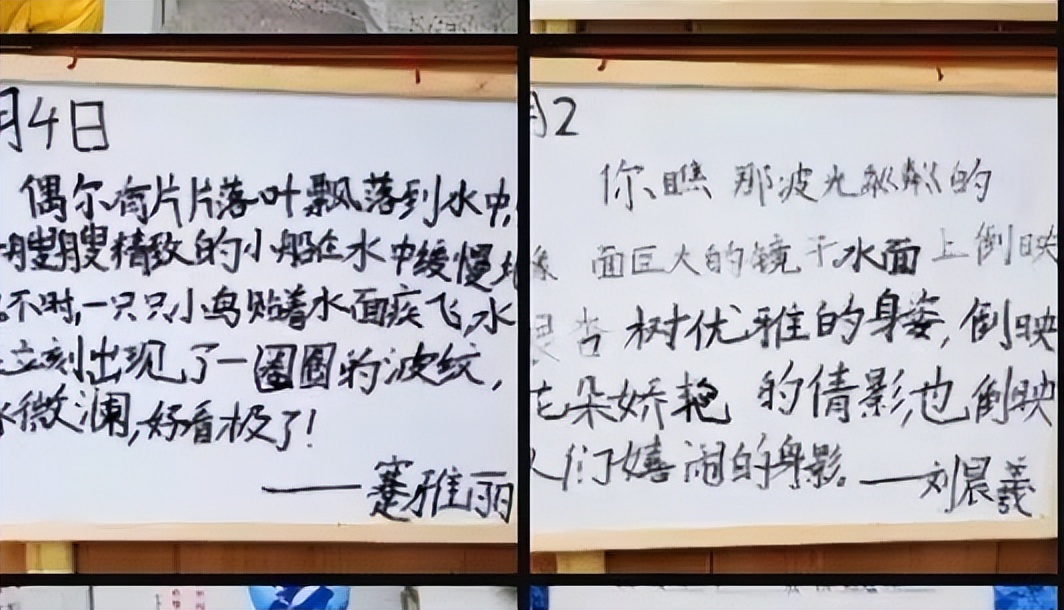 月4日
偶尔有片片落叶飘落到水中,
艘艘精致的小船在水中缓慢
不时,一只只小鸟贴着水面疾飞,水
立刻出现了一圈圈的波纹,
微澜,好看极了!
——蹇雅丽
月2
你瞧 那波光粼粼的
面巨大的镜子水面上倒映
杏树优雅的身姿,倒映
花朵娇艳的倩影,也倒映
人们嬉闹的身影。——刘晨羲